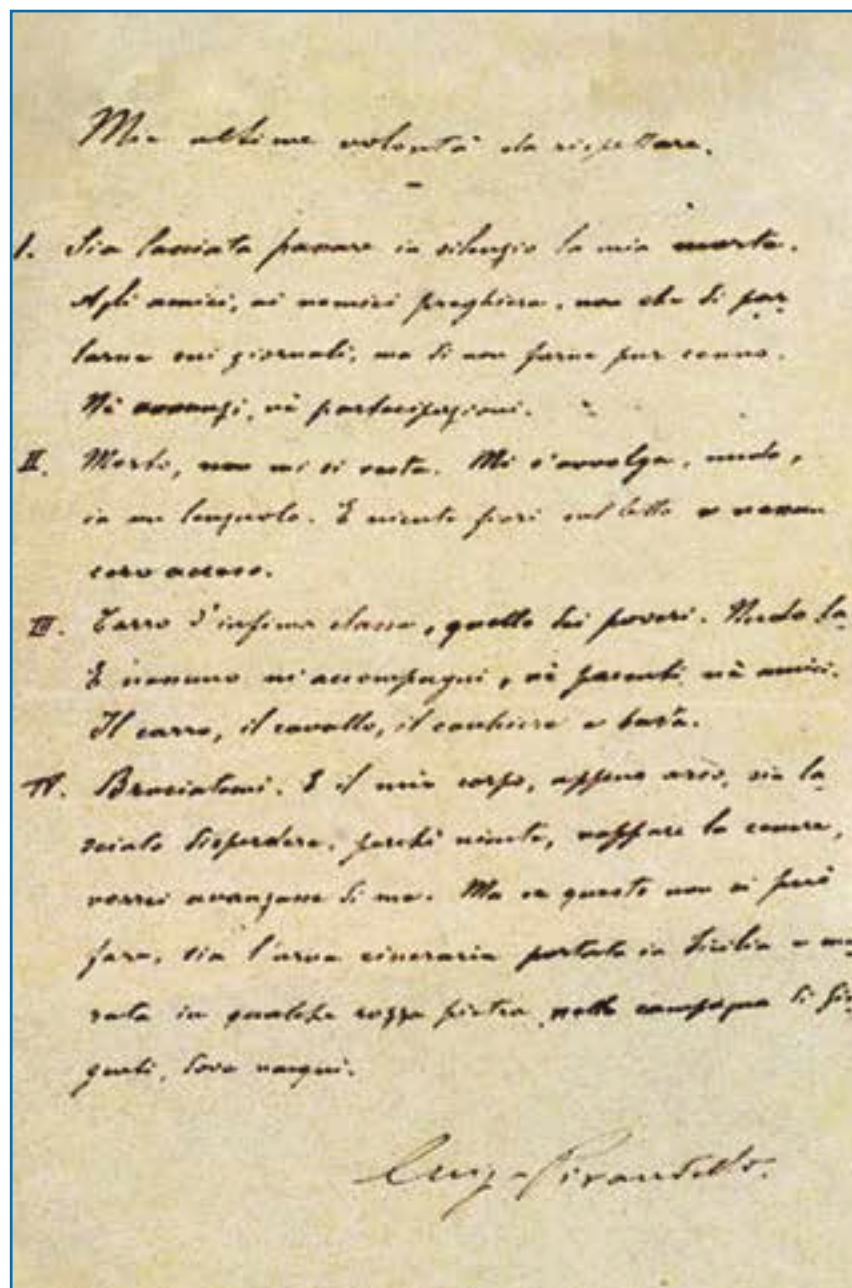 Mie ultime volontà da rispettare.
I. Sia lasciata passare in silenzio la mia morte.
Agli amici, ai nemici preghiera, non che di par
larne sui giornali, ma di non farne pur cenno.
Nè annunzi, nè partecipazioni.
II. Morto, non mi si vesta. Mi s'avvolga, nudo,
in un lenzuolo. E niente fiori sul letto e nessun
cero acceso.
III. Carro d'infima classe, quello dei poveri. Nudo.
E nessuno m'accompagni, nè parenti nè amici.
Il carro, il cavallo, il cocchiere e basta.
IV. Bruciatemi. E il mio corpo, appena arso, sia la
sciato disperdere; perchè niente, neppure la cenere,
vorrei avanzasse di me. Ma se questo non si può
fare, sia l'urna cineraria portata in Sicilia e mu
rata in qualche rozza pietra nella campagna di Gir
genti, dove nacqui.
Luigi Pirandello.